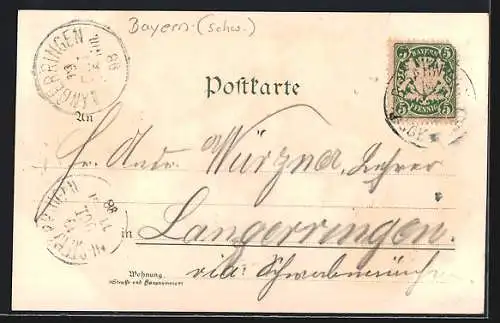 Bayern. (schw.)
LANGERRINGEN
98
BAYERN
5 5
5 5
PFENNIG
Postkarte
An
Hr. Andr. Würzner, Lehrer
in Langerringen.
via Schwabmünchen
98
Wohnung
(Straße und Hausnummer)